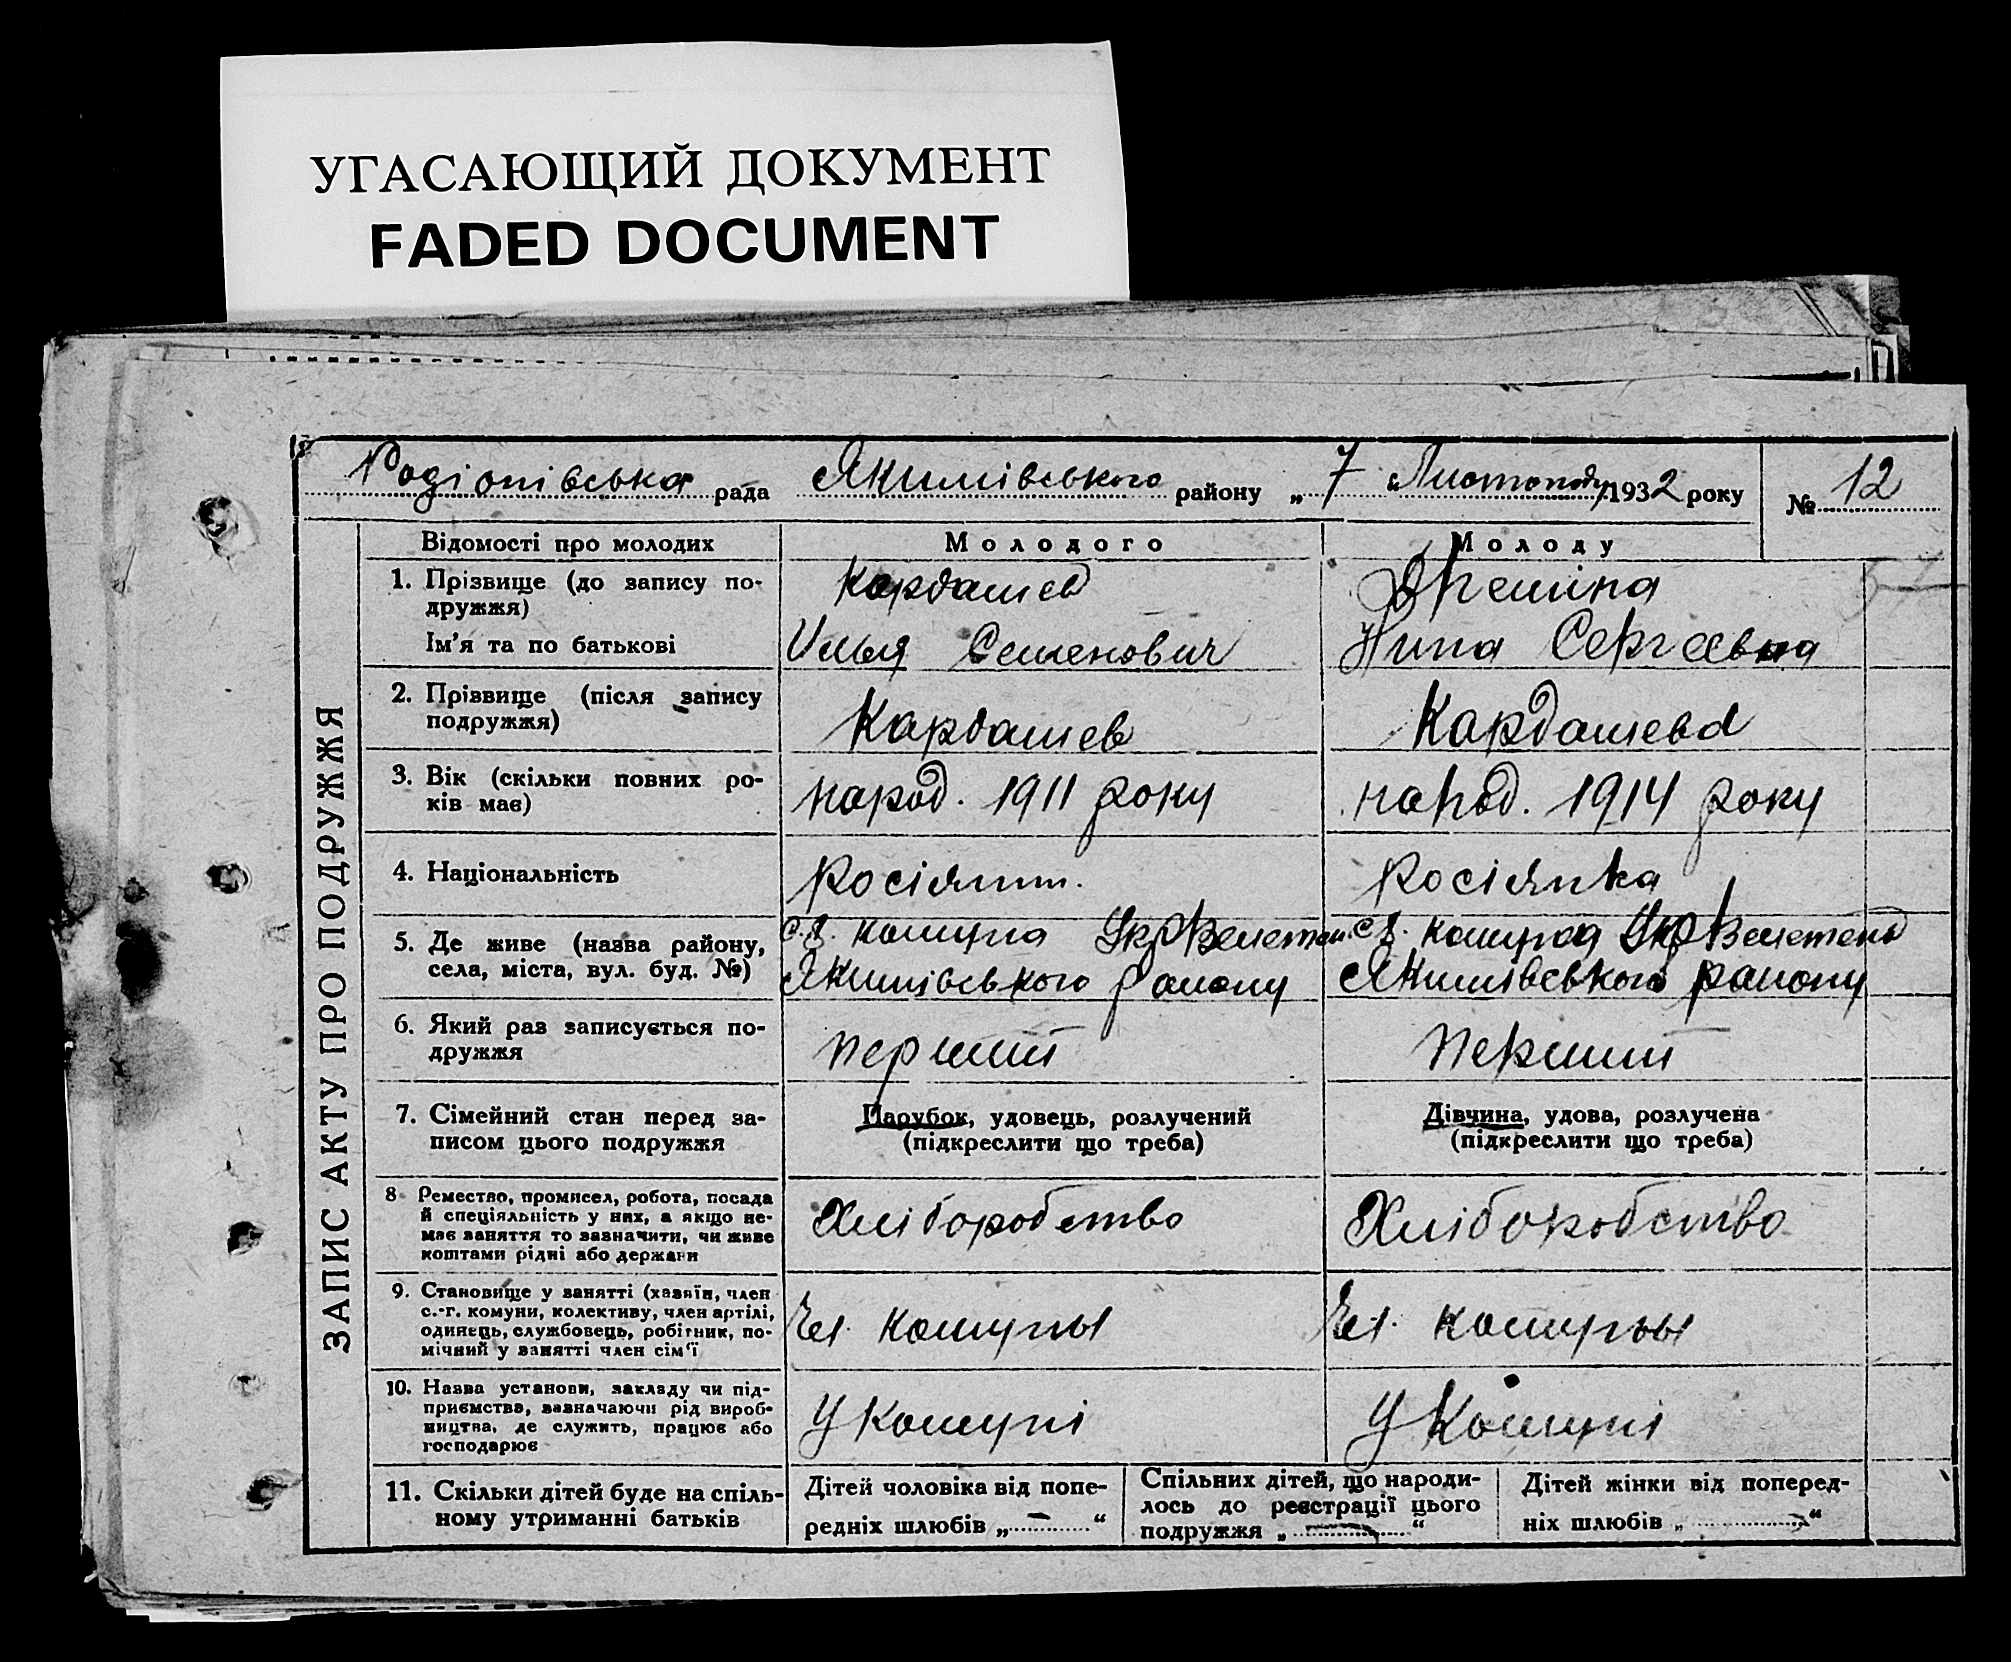 УГАСАЮЩИЙ ДОКУМЕНТ
FADED DOCUMENT
Родіонівська рада Якимівського району „ 7 " Листопаду 1932 року № 12
ЗАПИС АКТУ ПРО ПОДРУЖЖЯ
Відомості про молодих Молодого Молоду
1. Прізвище (до запису по-
дружжя)
Кардашев
Ім'я та по батькові
Илья Семенович Нина Сергеевна
2. Прізвище (після запису
подружжя)
Кардашев Кардашева
3. Вік (скільки повних ро-
ків має)
народ. 1911 року народ. 1914 року
4. Національність
Росіянин. Росіянка
5. Де живе (назва району,
села, міста, вул. буд. №)
комуна комуна
Якимівського району Якимівського району
6. Який раз записується по-
дружжя
перший перший
7. Сімейний стан перед за-
писом цього подружжя
Парубок, удовець, розлучений
(підкреслити що треба)
Дівчина, удова, розлучена
(підкреслити що треба)
8 Ремество, промисел, робота, посада
й спеціяльність у них, а якщо не-
має заняття то зазначити, чи живе
коштами рідні або держави
Хліборобство Хліборобство
9. Становище у занятті (хазяїн, член
с.-г. комуни, колективу, член артілі,
одинець, службовець, робітник, по-
мічний у занятті член сім'ї
Чл. комуны Чл. комуны
10. Назва установи, закладу чи під-
приємства, зазначаючи рід вироб-
ництва, де служить, працює або
господарює
У Комуні У Комуні
11. Скільки дітей буде на спіль-
ному утриманні батьків
Дітей чоловіка від попе-
редніх шлюбів „ — “
Спільних дітей, що народи-
лось до реєстрації цього
подружжя „ — “
Дітей жінки від поперед-
ніх шлюбів „ — “